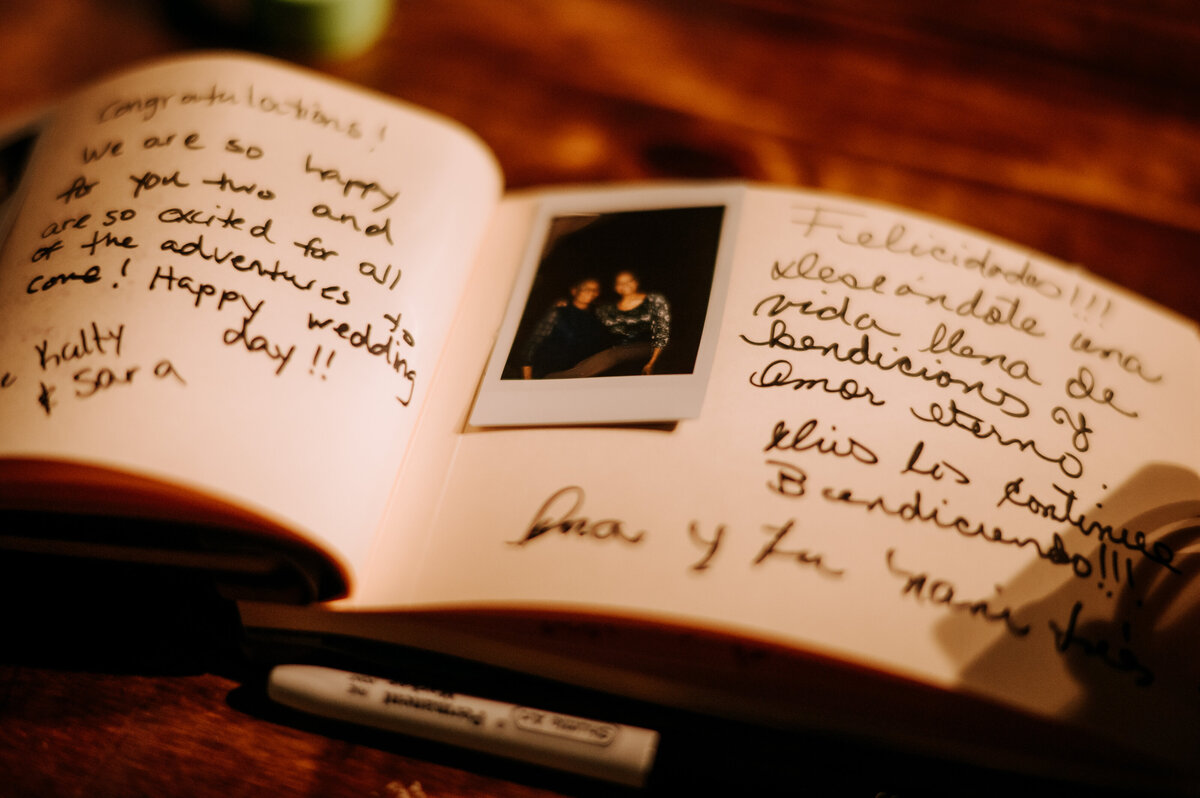 Congratulations!
We are so happy
for you two and
are so excited for all
of the adventures to
come! Happy wedding
day!!
Kalty
& Sara
Felicidades!!!
deseándote una
vida llena de
bendiciones y
amor eterno
Dios los continue
Bendiciendo!!!
Ana y Tu
Permanent